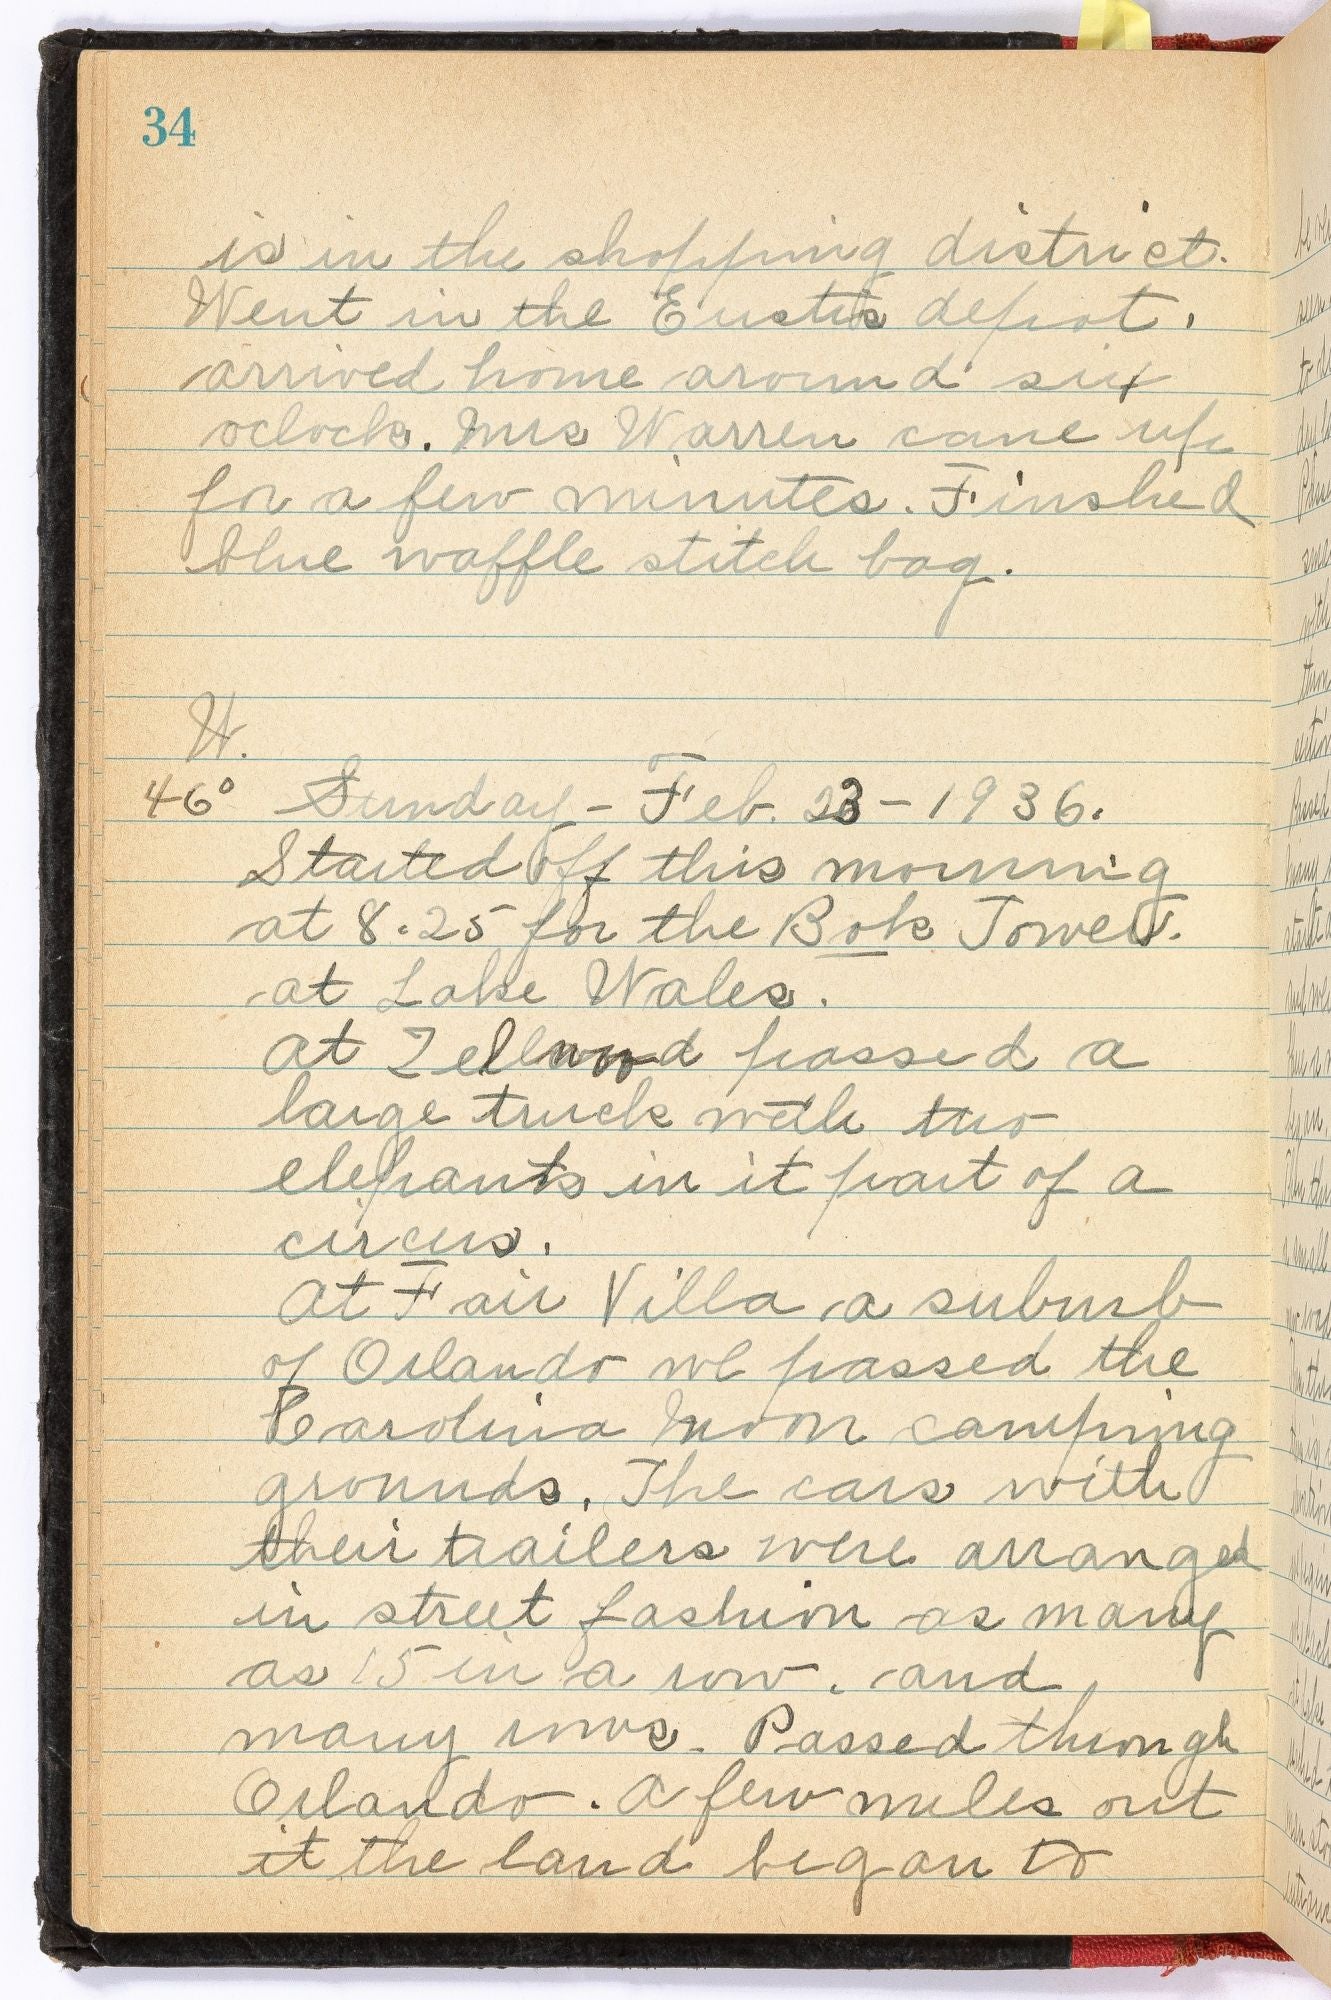 34
is in the shopping district.
Went in the Eustis depot.
arrived home around six
oclock. Mrs Warren came up
for a few minutes. Finshed
blue waffle stitch bag.
W.
46° Sunday - Feb. 23 - 1936.
Started off this morning
at 8.25 for the Bok Tower.
at Lake Wales.
At Zellwood passed a
large truck with two
elepants in it part of a
circus.
At Fair Villa a suburb
of Orlando we passed the
Carolina Moon camping
grounds. The cars with
their trailers were arranged
in street fashion as many
as 15 in a row. and
many rows. Passed through
Orlando. A few miles out
it the land began to